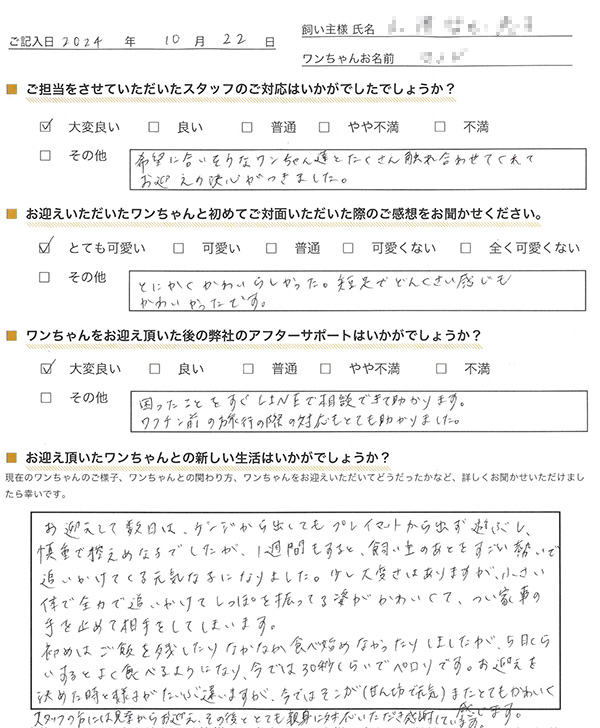 ご記入日 2024 年 10 月 22 日
飼い主様 氏名
ワンちゃんお名前
ご担当をさせていただいたスタッフのご対応はいかがでしたでしょうか？
☑ 大変良い □ 良い □ 普通 □ やや不満 □ 不満
□ その他
希望に合いそうなワンちゃん達とたくさん触れ合わせてくれて
お迎えの決心がつきました。
お迎えいただいたワンちゃんと初めてご対面いただいた際のご感想をお聞かせください。
☑ とても可愛い □ 可愛い □ 普通 □ 可愛くない □ 全く可愛くない
□ その他
とにかくかわいらしかった。短足でどんくさい感じも
かわいかったです。
ワンちゃんをお迎え頂いた後の弊社のアフターサポートはいかがでしょうか？
☑ 大変良い □ 良い □ 普通 □ やや不満 □ 不満
□ その他
困ったことをすぐLINEで相談できて助かります。
ワクチン前の旅行の際の対応もとても助かりました。
お迎え頂いたワンちゃんとの新しい生活はいかがでしょうか？
現在のワンちゃんのご様子、ワンちゃんとの関わり方、ワンちゃんをお迎えいただいてどうだったかなど、詳しくお聞かせいただけまし
たら幸いです。
お迎えして数日は、ケージから出してもプレイマットから出ず遊ぶし、
慎重で控えめな子でしたが、1週間もすると、飼い主のあとをすごい勢いで
追いかけてくる元気な子になりました。少し大変さはありますが、小さい
体で全力で追いかけてしっぽを振ってる姿がかわいくて、つい家事の
手を止めて相手をしてしまいます。
初めはご飯を残したりなかなか食べ始めなかったりしましたが、5日くら
いするとよく食べるようになり、今では30秒くらいでペロリです。お迎えを
決めた時と様子がだいぶ違いますが、今ではそこが(甘えん坊で元気)またとてもかわいく
感じます。
スタッフの方には見学からお迎え、その後ととても親身に対応いただき感謝しています。